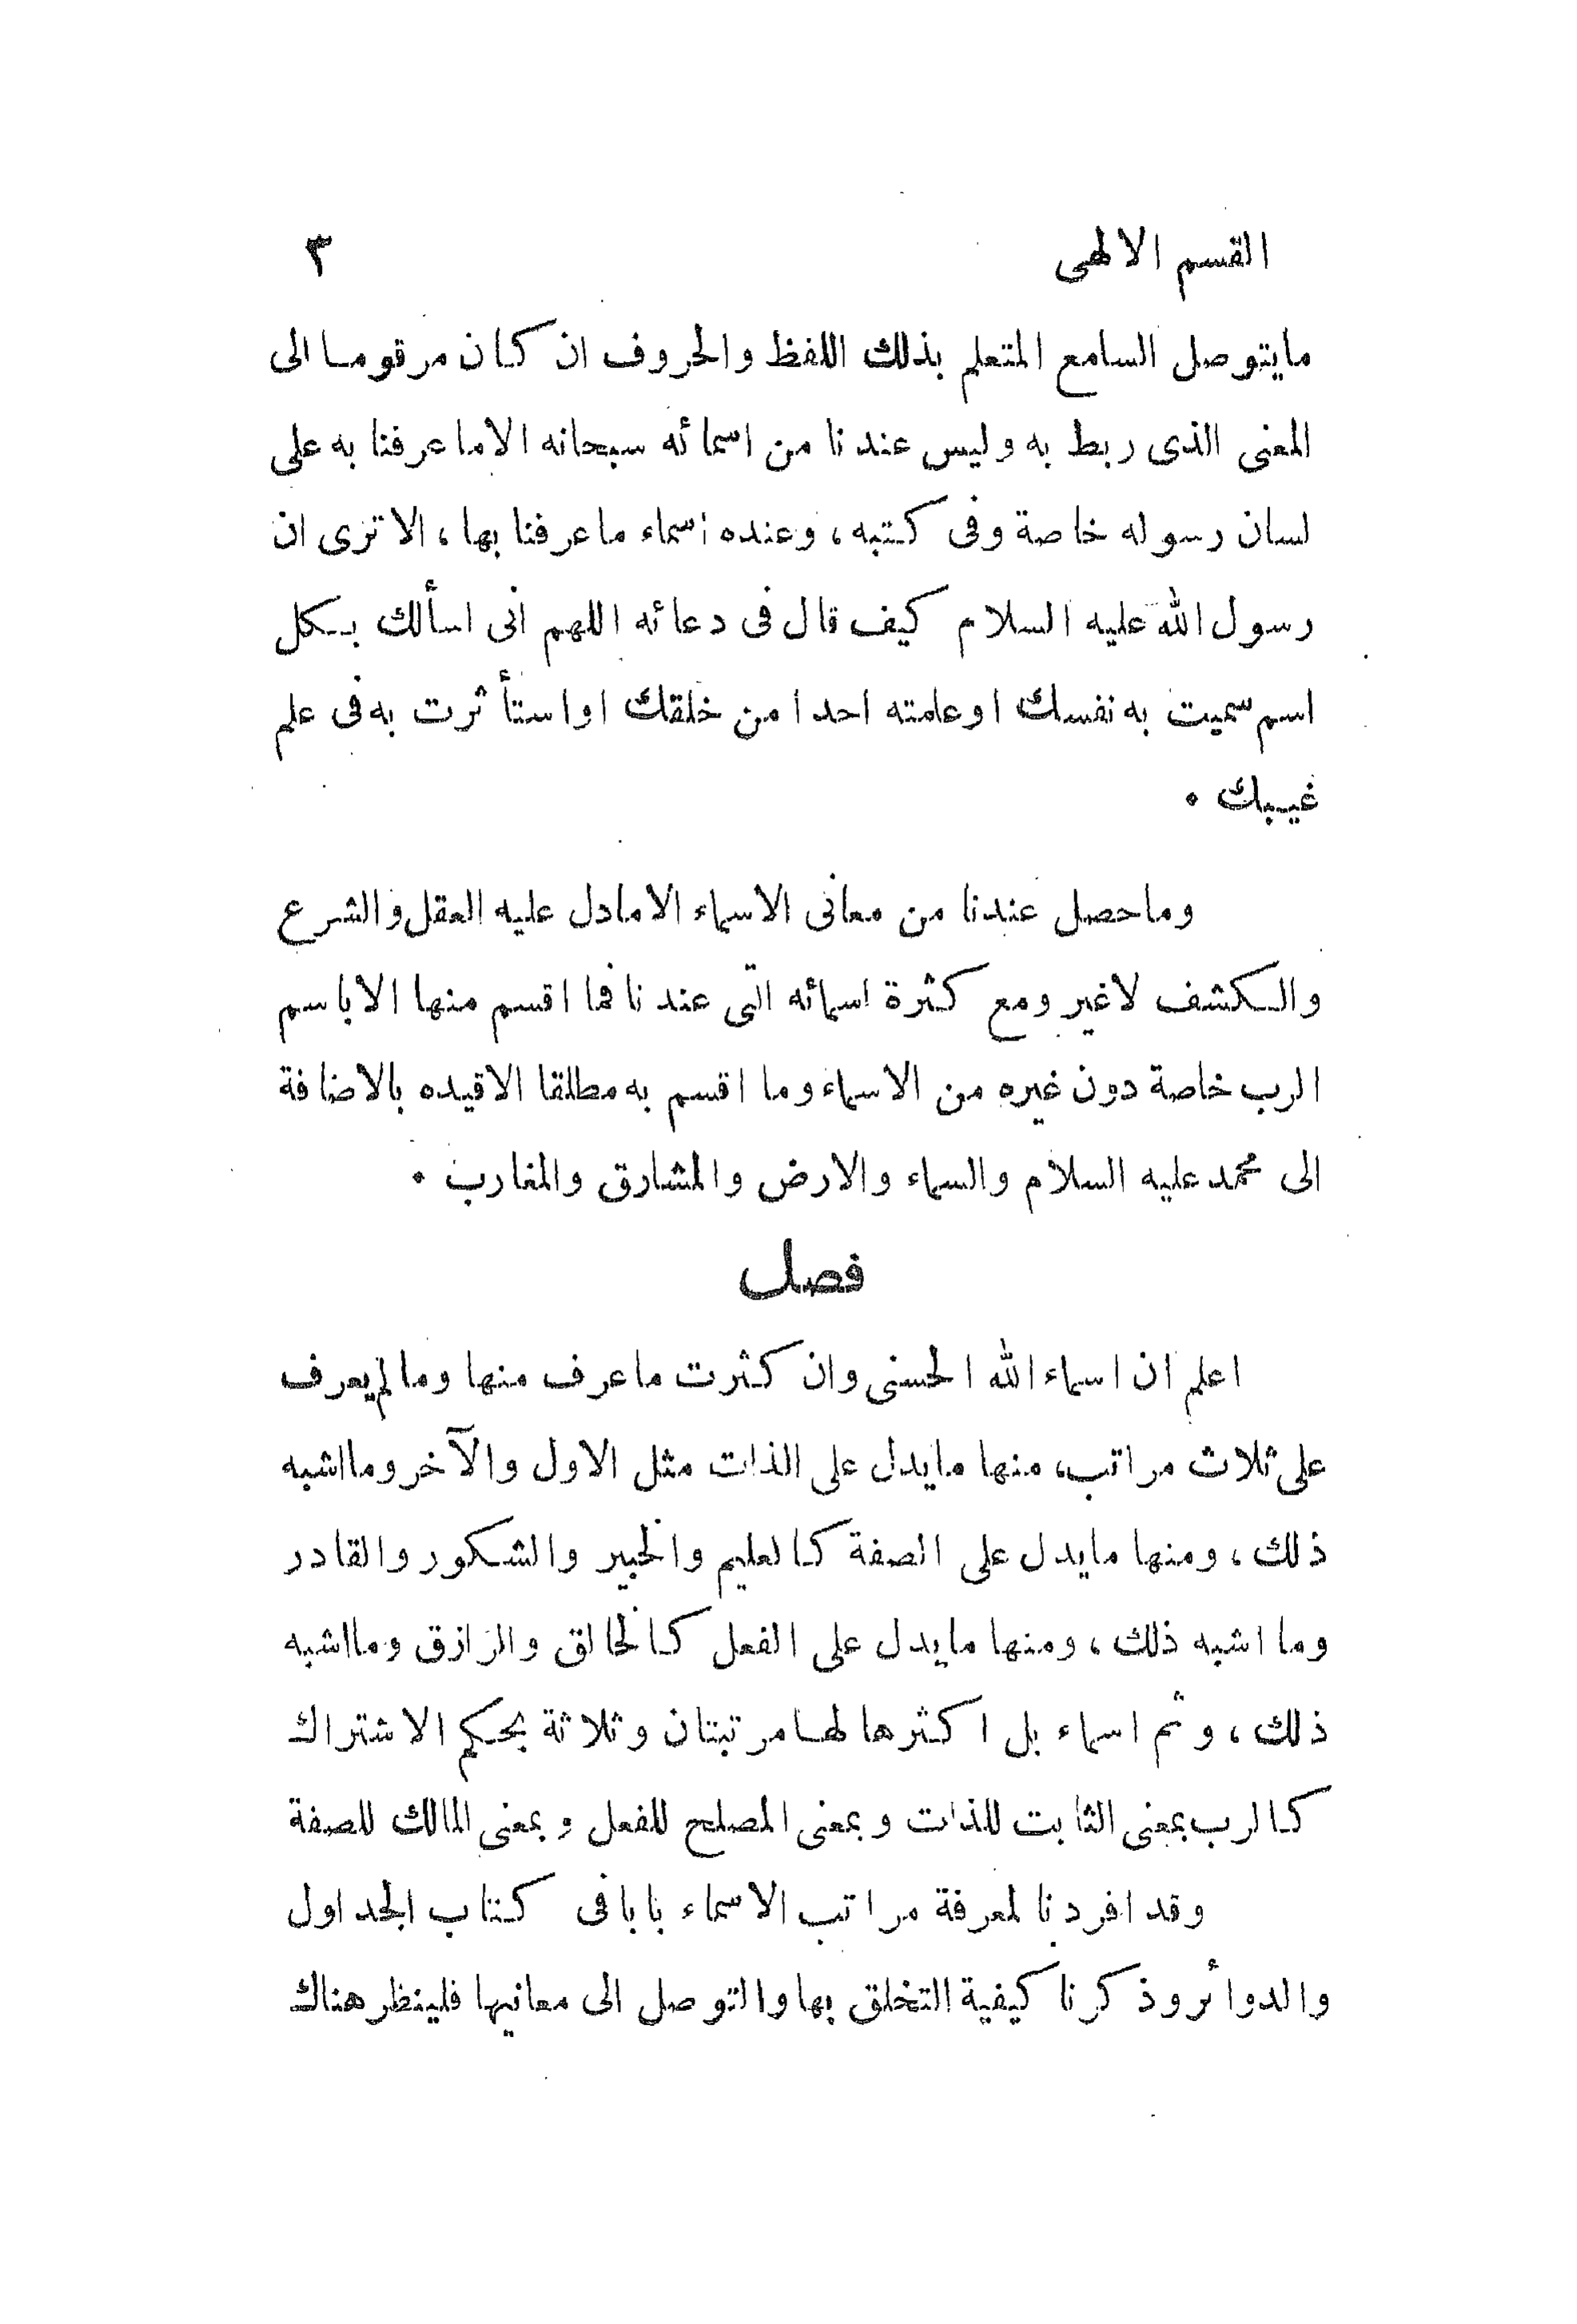 القسم الالهى ٣
مايتوصل السامع المتعلم بذلك اللفظ والحروف ان كان مرقوما الى
المعنى الذى ربط به وليس عندنا من اسمائه سبحانه الاما عرفنا به على
لسان رسوله خاصة وفى كتبه، وعنده اسماء ما عرفنا بها، الا ترى ان
رسول الله عليه السلام كيف قال فى دعائه اللهم انى اسألك بكل
اسم سميت به نفسك او علمته احدا من خلقك او استأثرت به فى علم
غيبك .
وما حصل عندنا من معانى الاسماء الا مادل عليه العقل والشرع
والكشف لاغير ومع كثرة اسمائه التى عندنا فما اقسم منها الا باسم
الرب خاصة دون غيره من الاسماء وما اقسم به مطلقا الا قيده بالاضافة
الى محمد عليه السلام والسماء والارض والمشارق والمغارب .
فصل
اعلم ان اسماء الله الحسنى وان كثرت ما عرف منها وما لم يعرف
على ثلاث مراتب، منها مايدل على الذات مثل الاول والآخر وما اشبه
ذلك، ومنها مايدل على الصفة كالعليم والخبير والشكور والقادر
وما اشبه ذلك، ومنها مايدل على الفعل كالخالق والرازق وما اشبه
ذلك، وثم اسماء بل اكثرها لها مرتبتان وثلاثة بحكم الاشتراك
كالرب بمعنى الثابت للذات وبمعنى المصلح للفعل وبمعنى المالك للصفة
وقد افردنا لمعرفة مراتب الاسماء بابا فى كتاب الجداول
والدوائر وذكرنا كيفية التخلق بها والتوصل الى معانيها فلينظر هناك